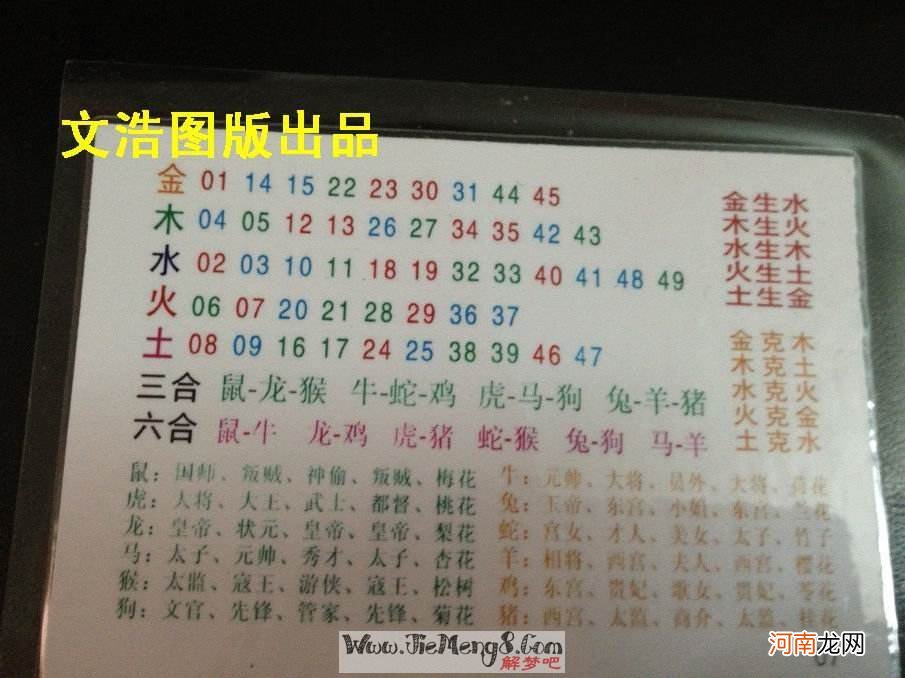 文浩图版出品
金 01 14 15 22 23 30 31 44 45
木 04 05 12 13 26 27 34 35 42 43
水 02 03 10 11 18 19 32 33 40 41 48 49
火 06 07 20 21 28 29 36 37
土 08 09 16 17 24 25 38 39 46 47
金生水
木生火
水生木
火生土
土生金
金克木
木克土
水克火
火克金
土克水
三合 鼠-龙-猴 牛-蛇-鸡 虎-马-狗 兔-羊-猪
六合 鼠-牛 龙-鸡 虎-猪 蛇-猴 兔-狗 马-羊
鼠：国师、叛贼、神偷、叛贼、梅花
虎：大将、大王、武士、都督、桃花
龙：皇帝、状元、皇帝、皇帝、梨花
马：太子、元帅、秀才、太子、杏花
猴：太监、寇王、游侠、寇王、松树
狗：文官、先锋、管家、先锋、菊花
牛：元帅、大将、员外、大将、荷花
兔：玉帝、东宫、小姐、东宫、兰花
蛇：宫女、才人、美女、太子、竹子
羊：相将、西宫、夫人、西宫、樱花
鸡：东宫、贵妃、歌女、贵妃、苓花
猪：西宫、太监、商介、太监、桂花
Www.JieMeng8.Com
解梦吧
河南龙网